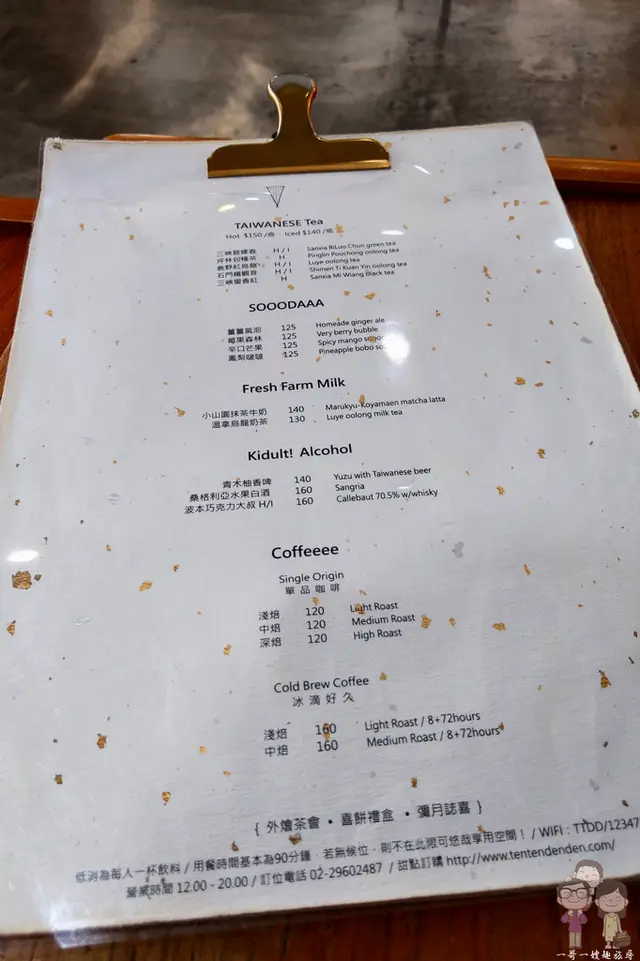 TAIWANESE Tea
Hot $150 /壺 Iced $140 /瓶
三峽碧螺春 H / I Sanxia BiLuo Chun green tea
坪林包種茶 H Pinglin Pouchong oolong tea
鹿野紅烏龍 H / I Luye oolong tea
石門鐵觀音 H / I Shimen Ti Kuan Yin oolong tea
三峽蜜香紅 H Sanxia Mi Wiang Black tea
SOOODAAA
薑薑氣泡 125 Homeade ginger ale
莓果森林 125 Very berry bubble
辛口芒果 125 Spicy mango
鳳梨啵啵 125 Pineapple bobo
Fresh Farm Milk
小山園抹茶牛奶 140 Marukyu-Koyamaen matcha latta
溫拿烏龍奶茶 130 Luye oolong milk tea
Kidult! Alcohol
青木柚香啤 140 Yuzu with Taiwanese beer
桑格利亞水果白酒 160 Sangria
波本巧克力大叔 H/I 160 Callebaut 70.5% w/whisky
Coffeeee
Single Origin
單品咖啡
淺焙 120 Light Roast
中焙 120 Medium Roast
深焙 120 High Roast
Cold Brew Coffee
冰滴好久
淺焙 160 Light Roast / 8+72hours
中焙 160 Medium Roast / 8+72hours
{ 外燴茶會 • 喜餅禮盒 • 彌月誌喜 }
低消為每人一杯飲料 / 用餐時間基本為90分鐘，若無候位，則不在此限可悠哉享用空間！ / WIFI : TTDD/12347
營業時間 12.00 - 20.00 / 訂位電話 02-29602487 / 甜點訂購 http://www.tentendenden.com/
一哥一嫂趣旅尋